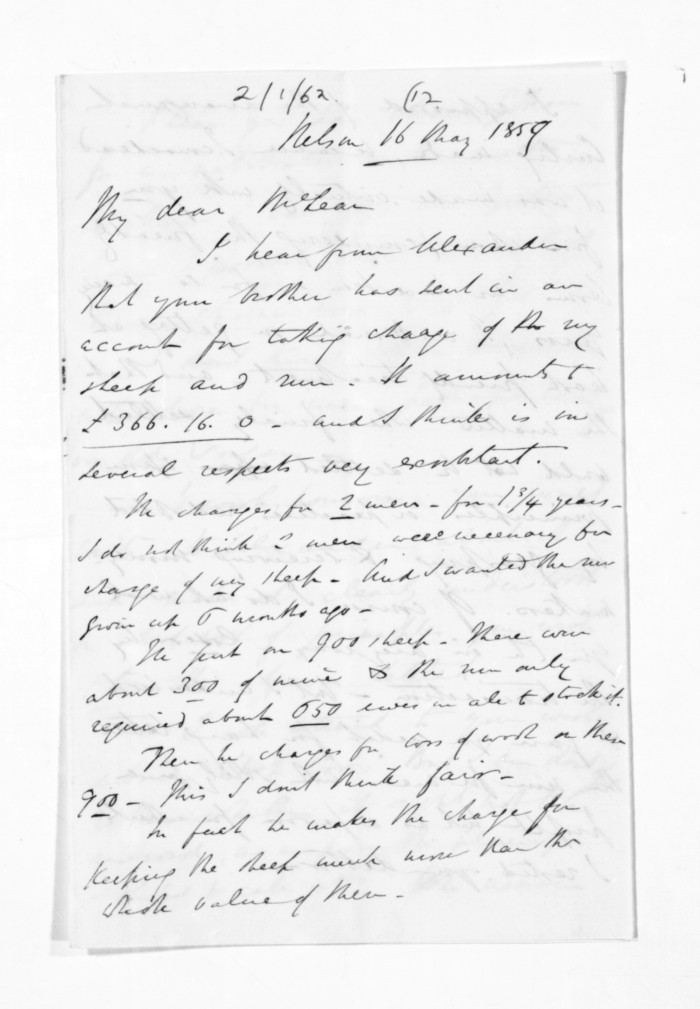 2/1/62 (12
Nelson 16 May 1859
My dear McLean
I hear from Alexander
that your brother has sent in an
account for taking charge of the my
sheep and run. It amounts to
£366.16.0 - and I think is in
several respects very exorbitant.
He charges for 2 men - for 1 3/4 years -
I do not think 2 men were necessary for
charge of my sheep - And I wanted the run
given up 6 months ago -
He put on 900 sheep - There were
about 300 of mine & the run only
required about 650 ewes in all to stock it.
Then he charges for loss of wool on these
900 - This I don't think fair -
In fact he makes the charge for
keeping the sheep much more than the
whole value of them -